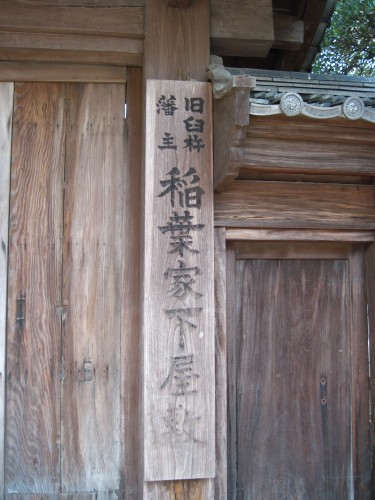 旧臼杵
藩主
稲葉家下屋敷